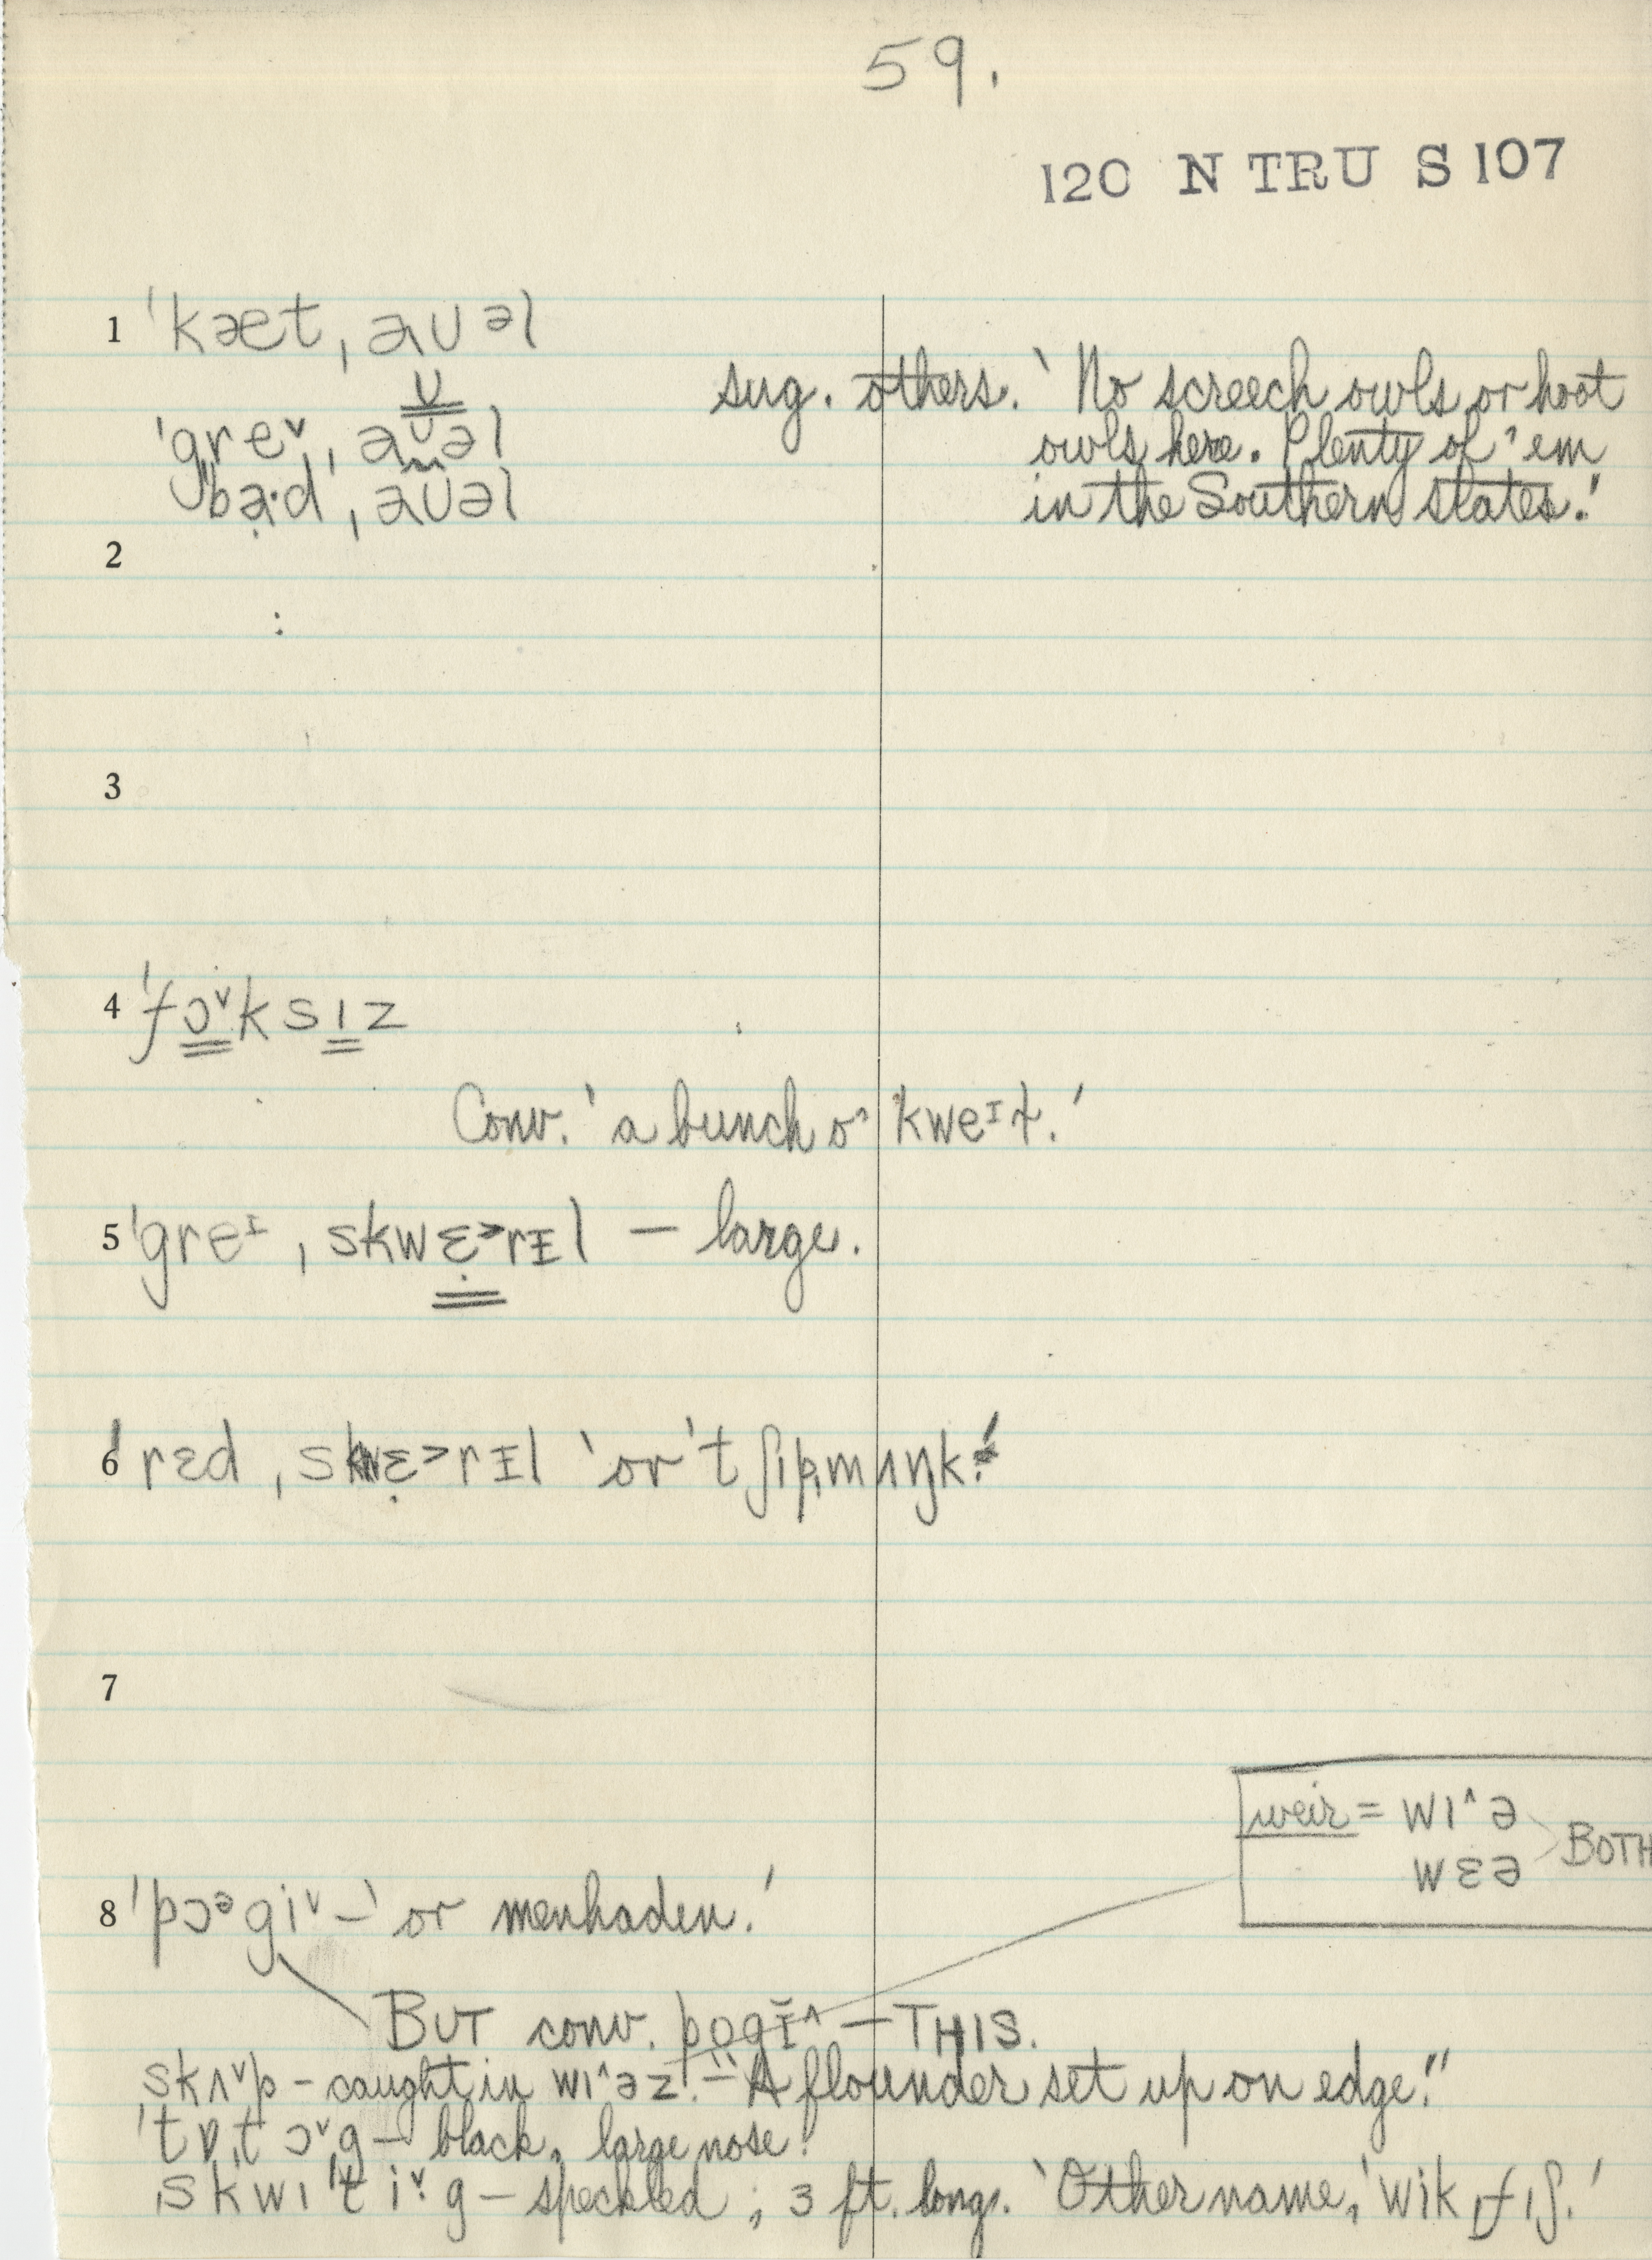 59.
120 N TRU S 107
1 ˈkæt ˌaʊəl
ˈgre˅ ˌaʊəl
sug. others. 'No screech owls or hoot
owls here. Plenty of 'em
in the Southern states.'
ˈba·d ˌaʊəl
2
:
3
4 ˈfɔ˅ksɪz
Conv. 'a bunch o' kweᴵt.'
5 ˈgreᴵ ˌskwɛ̣˃rɪl — large.
6 ˈrɛd ˌskwɛ̣˃rɪl 'or ˈtʃɪpˌmʌŋk.'
7
weir = wɪ^ə
wɛə BOTH
8 ˈpɔᵊgi˅ — 'or menhaden.'
BUT conv. pɒgĭ^ — THIS.
skʌ˅p - caught in wɪ^əz. - "A flounder set up on edge."
ˈtɒˌtɔ˅g — black, large nose.
ˌskwɪˈti˅·g — speckled; 3 ft. long. 'Other name, ˈwikˌfɪʃ.'